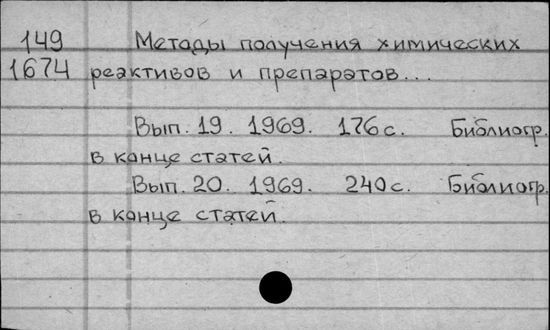 149 Методы получения химических
1674 реактивов и препаратов...
Вып. 19. 1969. 176 с. Библиогр.
в конце статей.
Вып. 20. 1969. 240 с. Библиогр.
в конце статей.